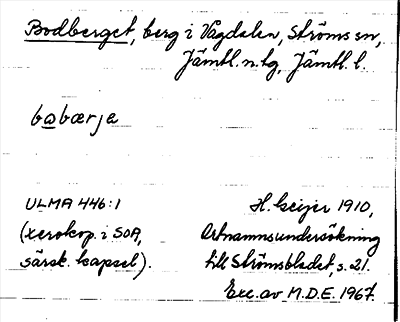 Bodberget, berg i Vågdalen, Ströms sn,
Jämtl. n. tg, Jämtl. l.
bo̲bærja
ULMA 446:1
(xerokop. i SOA,
särsk. kapsel).
H. Geijer 1910,
Ortnamnsundersökning
till Strömsbladet, s. 21.
Exc. av M.D.E. 1967.